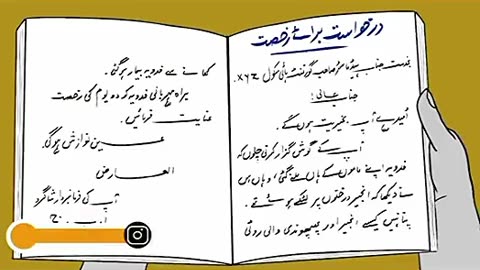 درخواست برائے رخصت
بخدمت جناب ہیڈ ماسٹر صاحب گورنمنٹ ہائی سکول
جناب عالی!
امید ہے آپ بخیریت ہوں گے۔
آپ کے گوش گزار کرتی چلوں کہ
فدویہ اپنے ماموں کے ہاں ملنے گئی، وہاں میں
نے دیکھا کہ انجیر درختوں پر لٹکے ہوئے تھے۔
پتا نہیں کیسے انجیر اور پھپھوندی والی روٹی
کھانے سے فدویہ بیمار ہو گئی۔
براہ مہربانی فدویہ کو دو یوم کی رخصت
عنایت فرمائیں۔
عین نوازش ہو گی۔
العارض
آپ کی فرمانبردار شاگرد
ا۔ ب۔ ج